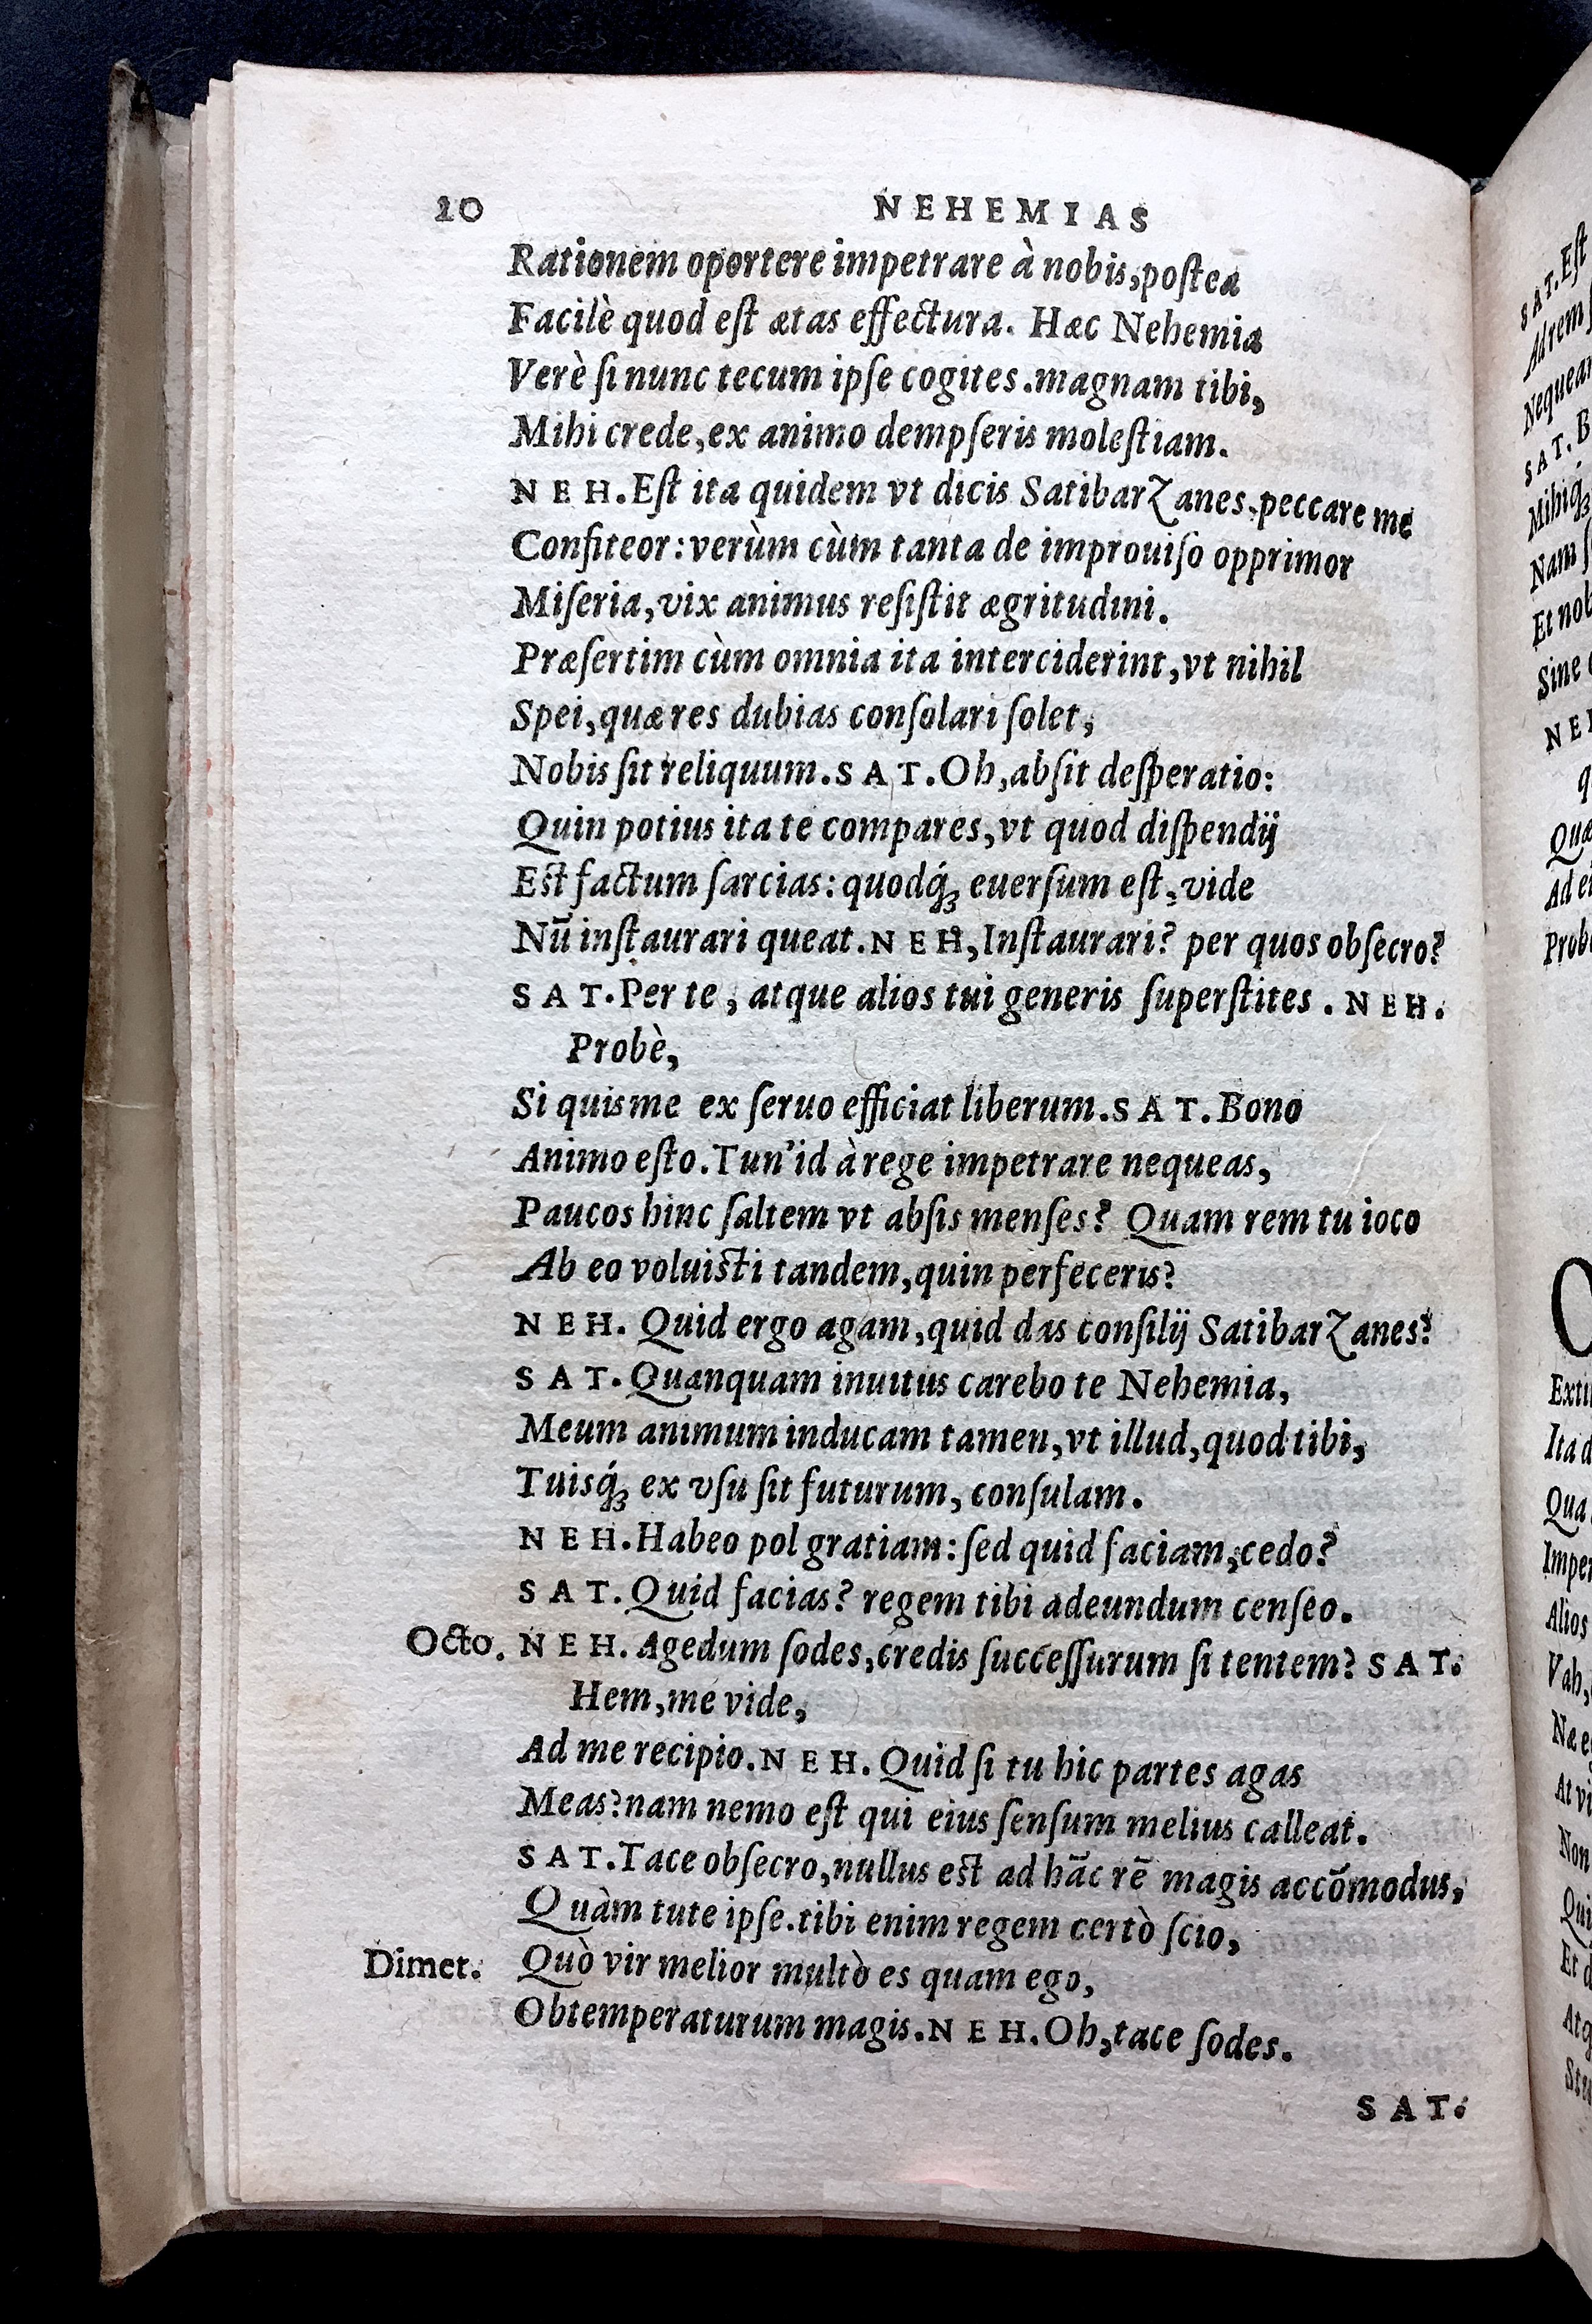 20 NEHEMIAS
Rationem oportere impetrare à nobis, poſtea
Facilè quod eſt ætas effectura. Hæc Nehemia
Verè ſi nunc tecum ipſe cogites. magnam tibi,
Mihi crede, ex animo dempſeris moleſtiam.
NEH. Eſt ita quidem vt dicis Satibarzanes, peccare me
Confiteor: verùm cùm tanta de improuiſo opprimor
Miſeria, vix animus reſiſtit ægritudini.
Præſertim cùm omnia ita interciderint, vt nihil
Spei, quæ res dubias conſolari ſolet,
Nobis ſit reliquum. SAT. Oh, abſit deſperatio:
Quin potius ita te compares, vt quod diſpendij
Eſt factum ſarcias: quodq́ꝫ euerſum eſt, vide
Nū inſtaurari queat. NEH, Inſtaurari? per quos obſecro?
SAT. Per te, atque alios tui generis ſuperſtites. NEH.
Probè,
Si quis me ex ſeruo efficiat liberum. SAT. Bono
Animo eſto. Tun' id à rege impetrare nequeas,
Paucos hinc ſaltem vt abſis menſes? Quam rem tu ioco
Ab eo voluiſti tandem, quin perfeceris?
NEH. Quid ergo agam, quid das conſilij Satibarzanes?
SAT. Quanquam inuitus carebo te Nehemia,
Meum animum inducam tamen, vt illud, quod tibi,
Tuisq́ꝫ ex vſu ſit futurum, conſulam.
NEH. Habeo pol gratiam: ſed quid faciam, cedo?
SAT. Quid facias? regem tibi adeundum cenſeo.
Octo. NEH. Agedum ſodes, credis ſucceſſurum ſi tentem? SAT.
Hem, me vide,
Ad me recipio. NEH. Quid ſi tu hic partes agas
Meas? nam nemo eſt qui eius ſenſum melius calleat.
SAT. Tace obſecro, nullus eſt ad hāc rē magis accōmodus,
Quàm tute ipſe. tibi enim regem certò ſcio,
Dimet. Quò vir melior multò es quam ego,
Obtemperaturum magis. NEH. Oh, tace ſodes.
SAT.
SAT. Eſt
Ad rem
SAT. B
Nam
Et nob
Sine
Ad ei
Prob
Ita d
Qua
Alios
Vah,
At vi
Non
Et d